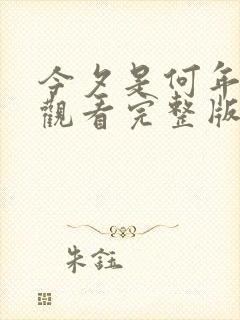 今夕是何年
觀看完整版
朱鈺